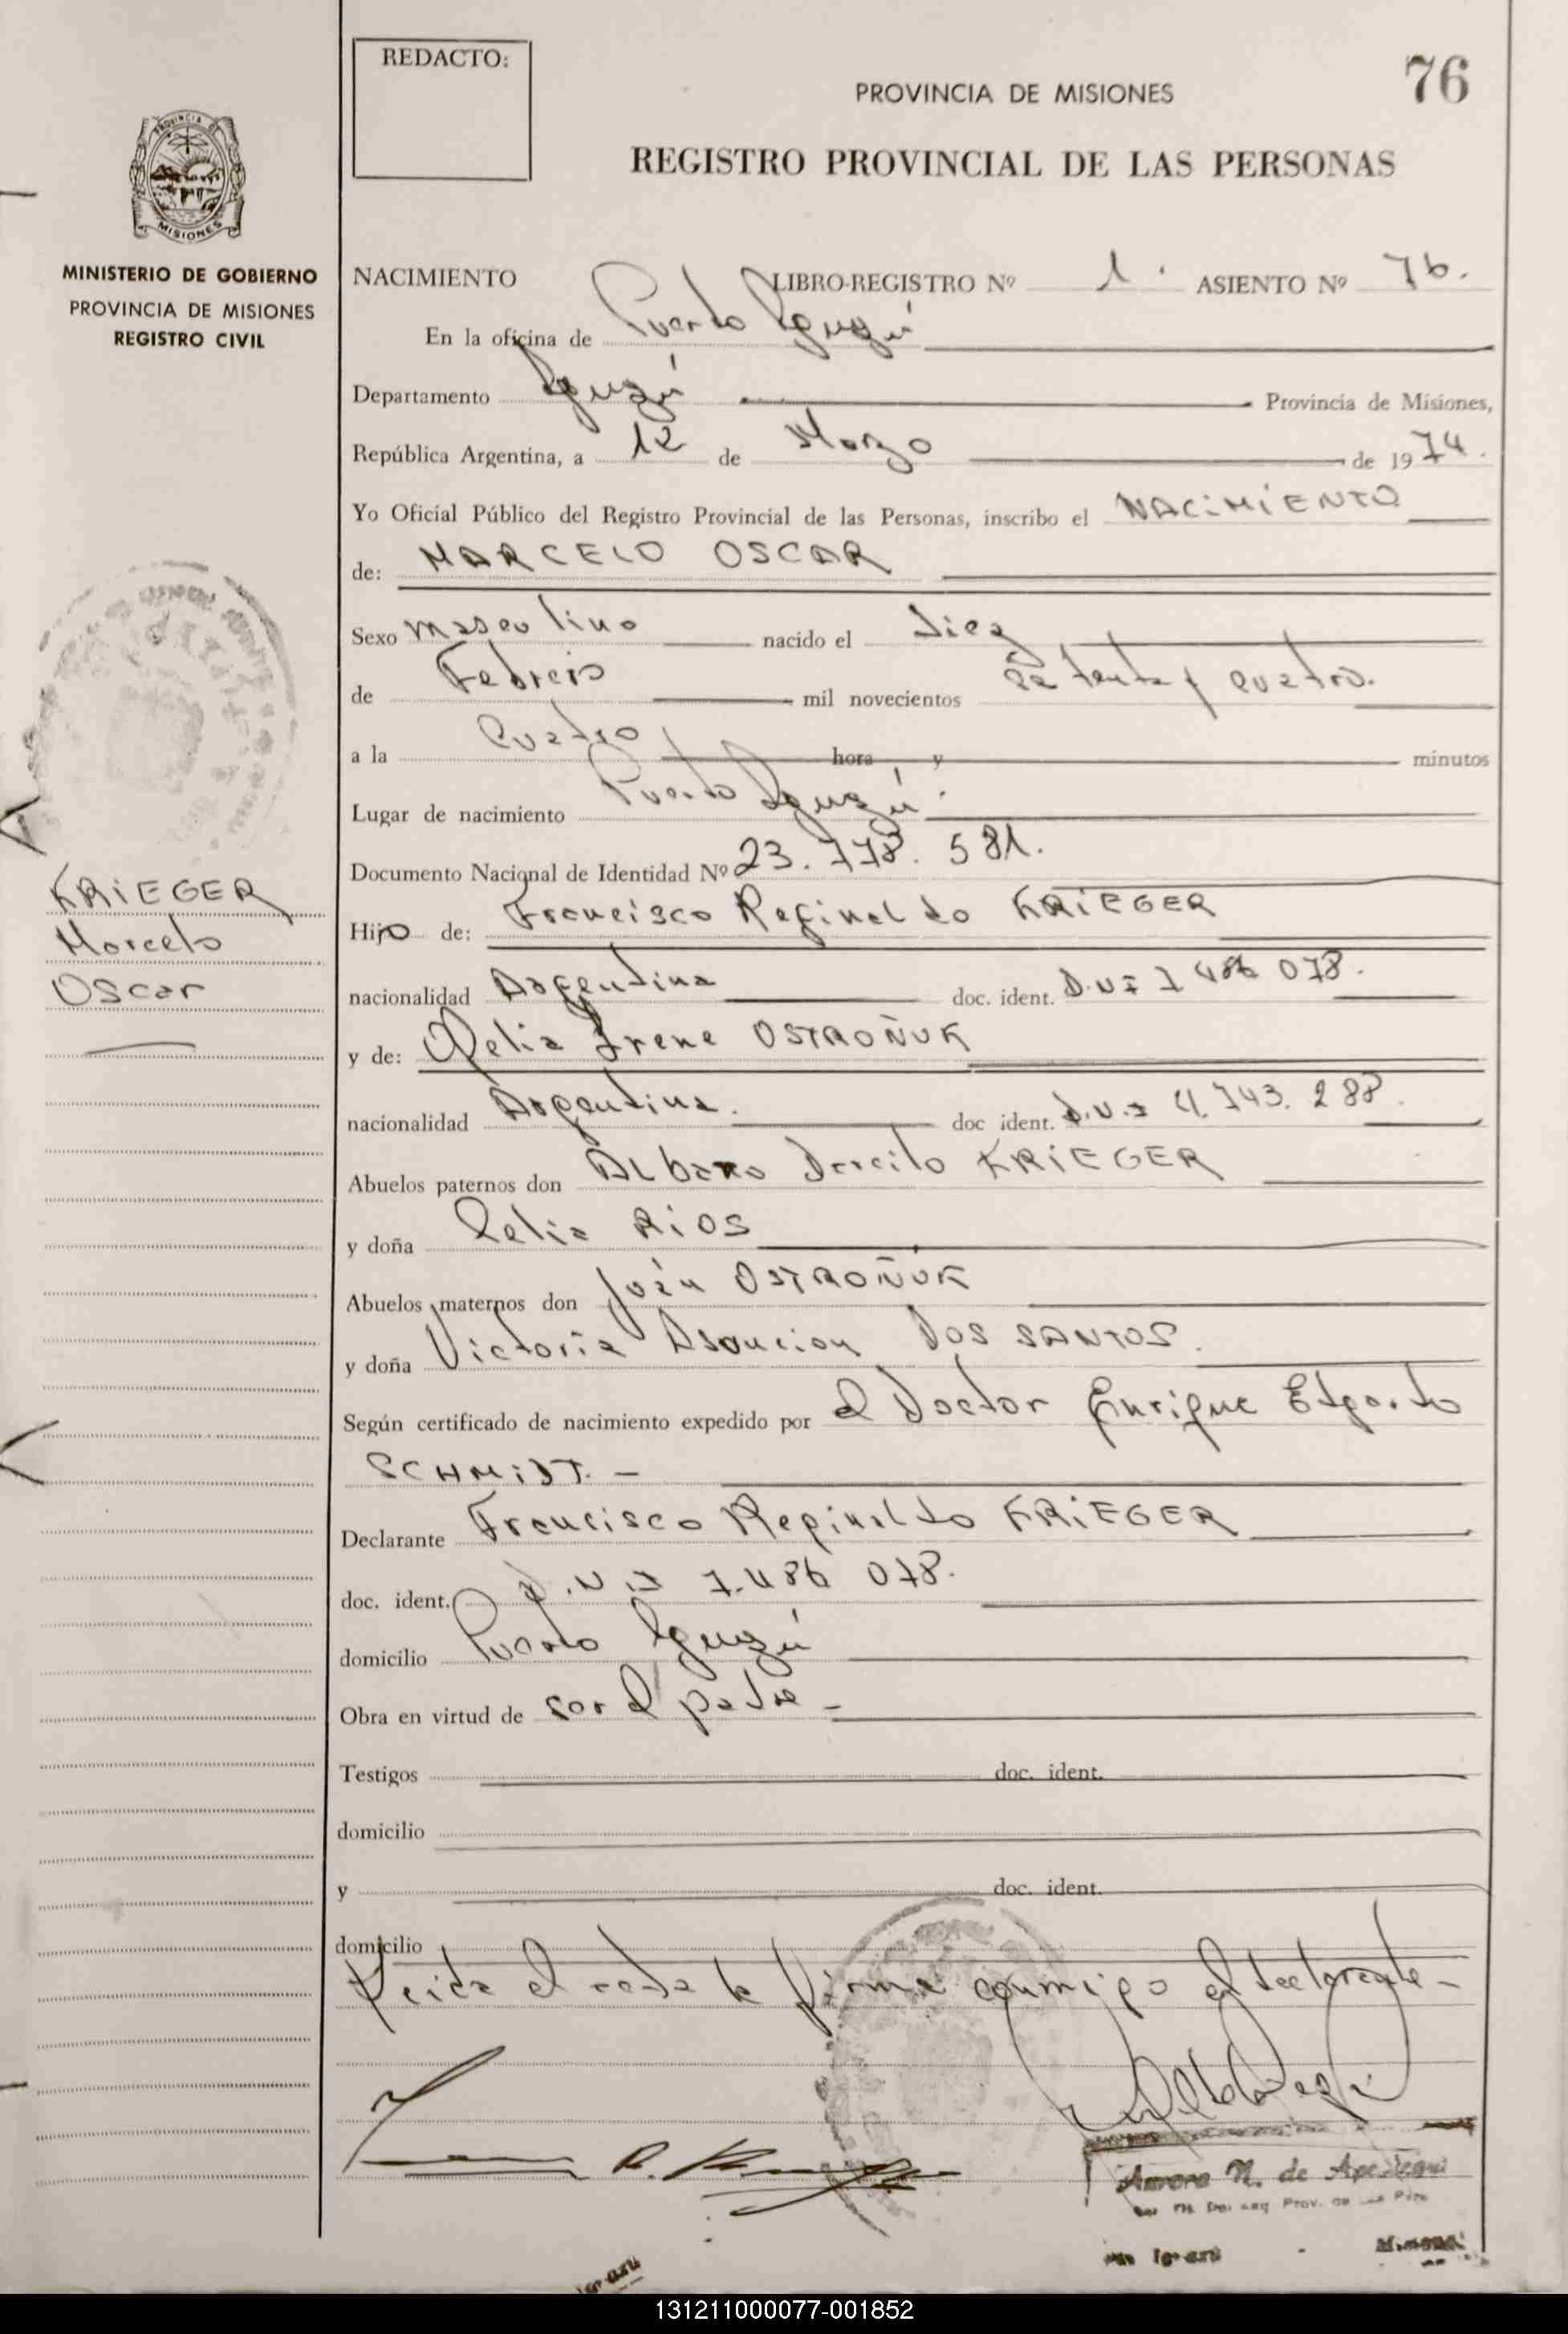 REDACTO:
76
PROVINCIA DE MISIONES
REGISTRO PROVINCIAL DE LAS PERSONAS
MISIONES
MINISTERIO DE GOBIERNO
PROVINCIA DE MISIONES
REGISTRO CIVIL
NACIMIENTO LIBRO-REGISTRO Nº 1. ASIENTO Nº 76.
En la oficina de Puerto Iguazú
Departamento Iguazú Provincia de Misiones,
República Argentina, a 12 de Marzo de 1974.
Yo Oficial Público del Registro Provincial de las Personas, inscribo el NACIMIENTO
de: MARCELO OSCAR
Sexo masculino nacido el diez
de Febrero mil novecientos setenta y cuatro.
a la cuatro hora y minutos
Lugar de nacimiento Puerto Iguazú.
Documento Nacional de Identidad Nº 23.778.581.
KRIEGER
Marcelo
Oscar
Hijo de: Francisco Reginaldo KRIEGER
nacionalidad Argentina doc. ident. D.N.I 7 486 078.
y de: Irene OSTROÑUK
nacionalidad Argentina. doc ident. D.N.I 4.743.288.
Abuelos paternos don Albano KRIEGER
y doña Celia RIOS
Abuelos maternos don Juán OSTROÑUK
y doña Victoria Asuncion DOS SANTOS.
Según certificado de nacimiento expedido por el Doctor Enrique Edgardo
SCHMIDT. -
Declarante Francisco Reginaldo KRIEGER
doc. ident. D.N.I 7.486 078.
domicilio Puerto Iguazú
Obra en virtud de ser el padre -
Testigos doc. ident.
domicilio
y doc. ident.
domicilio
Leida el acta la firma conmigo el declarante -
N. de Apestegui
131211000077-001852